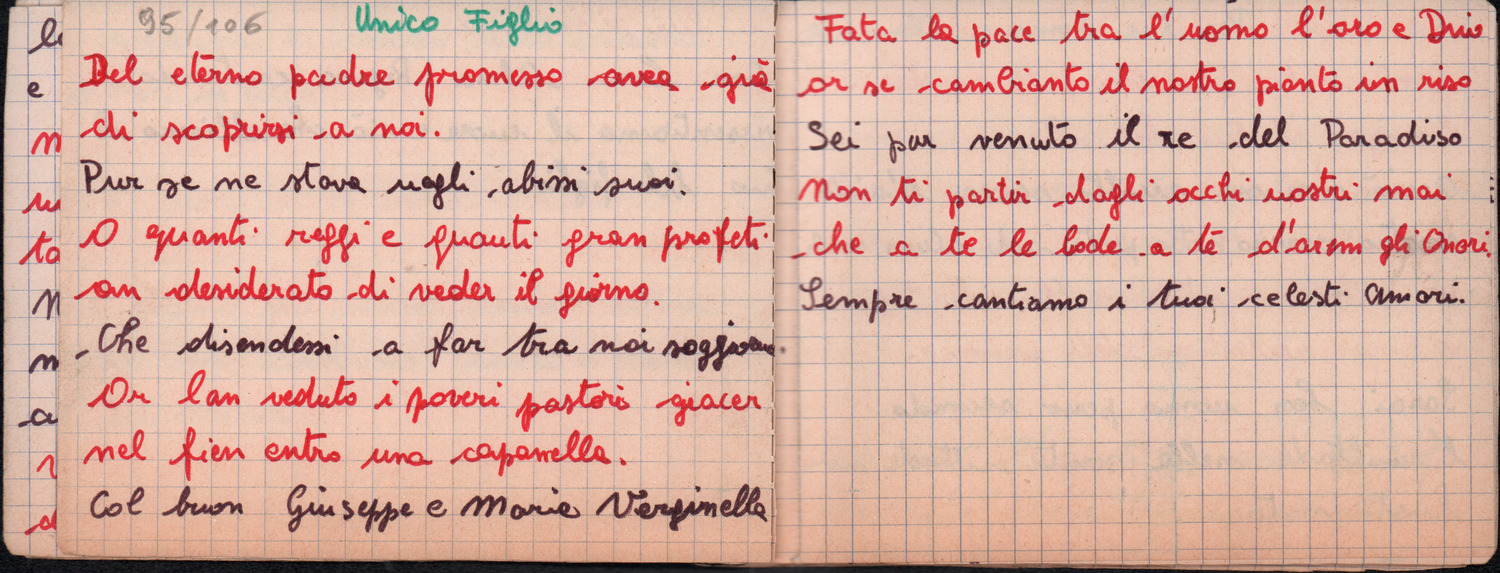 95/106
Unico Figlio
Del eterno padre promesso avea già
di scoprirsi a noi.
Pur se ne stava negli abissi suoi.
O quanti reggi e quanti gran profeti
an desiderato di veder il giorno.
Che disendessi a far tra noi
Or lan veduto i poveri pastori giacer
nel fien entro una capannella.
Col buon Giuseppe e Maria Verginella
Fata la pace tra l'uomo l'oro e Dio
or se cambianto il nostro pianto in riso
Sei pur venuto il re del Paradiso
Non ti partir dagli occhi nostri mai
che a te le lode a te d'arem gli Onori.
Sempre cantiamo i tuoi celesti amori.